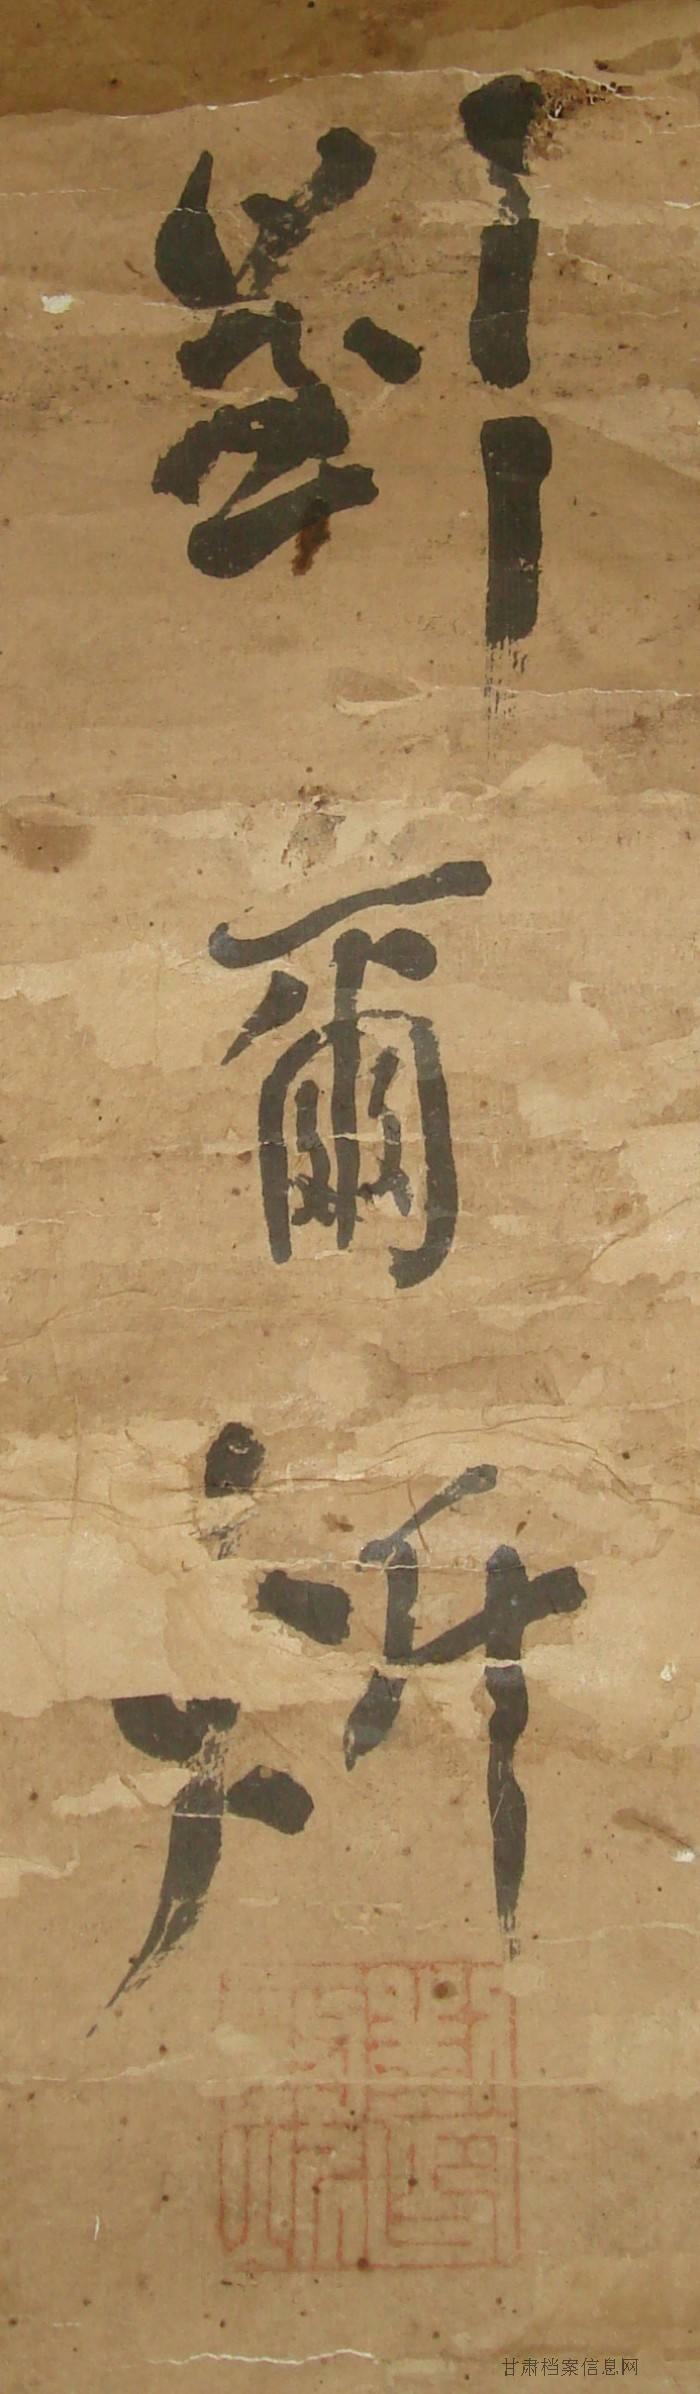 劉爾炘
甘肃档案信息网